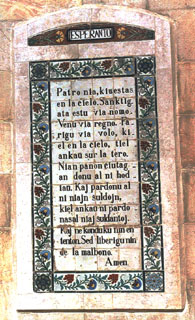 ESPERANTO
Patro nia, kiu estas
en la cielo. Sanktig
ata estu via nomo.
Venu via regno. Fa
rigu via volo, ki
el en la cielo, tiel
ankau sur la tero.
Nian panon ciutag
an donu al ni hod
iau. Kaj pardonu al
ni niajn suldojn,
kiel ankau ni pardo
nas al niaj suldantoj.
Kaj ne konduku nin en
tenton. Sed liberigu nin
de la malbono.
Amen.